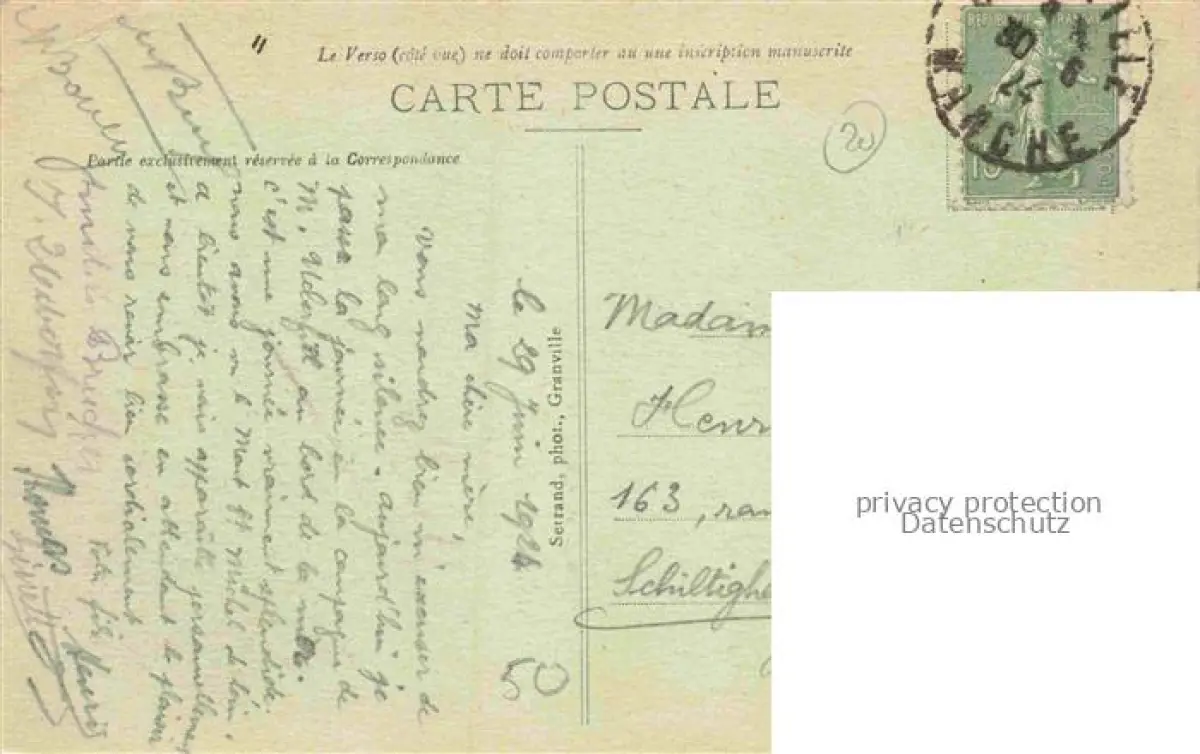 Le Verso (côté vue) ne doit comporter au une inscription manuscrite
CARTE POSTALE
Partie exclusivement réservée à la Correspondance
20
REPUBLIQUE FRANÇAISE
30
6
24
MANCHE
le 29 Juin 1924
Ma chère mère,
Vous voudrez bien m'excuser de
mon long silence. aujourd'hui je
passe la journée en la compagnie de
M. au bord de la mer.
c'est une journée vraiment splendide.
nous avons vu le Mont St Michel de loin.
a bientôt je vais apparaître personnellement
et vous embrasse en attendant le plaisir
de vous revoir bien cordialement
Votre fils
50
Setrand, phot., Granville
Madam
Henr
163,
Schiltighe
privacy protection
Datenschutz